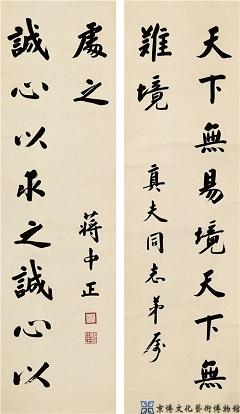 天下無易境天下無
難境
真夫同志弟屬
誠心以求之誠心以
處之
蔣中正
京博文化藝術博物館